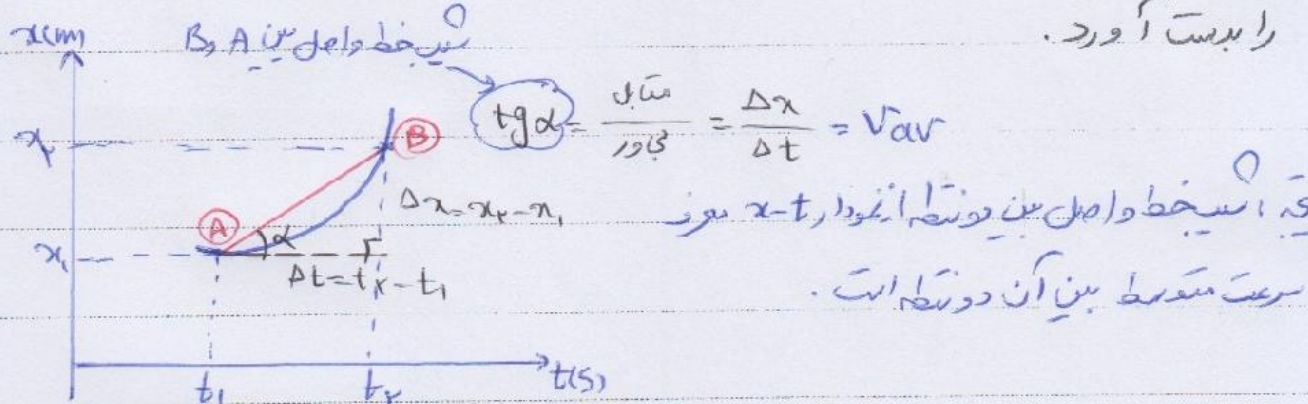 را بدست آورد.
x(m)
شیب خط واصل بین A و B
tgα = مقابل / مجاور = Δx / Δt = Vav
x۲
B
Δx=x۲-x۱
A
α
x۱
Δt=t۲-t۱
شیب خط واصل بین دو نقطه از نمودار x-t معرف
سرعت متوسط بین آن دو نقطه است.
t۱
t۲
t(s)